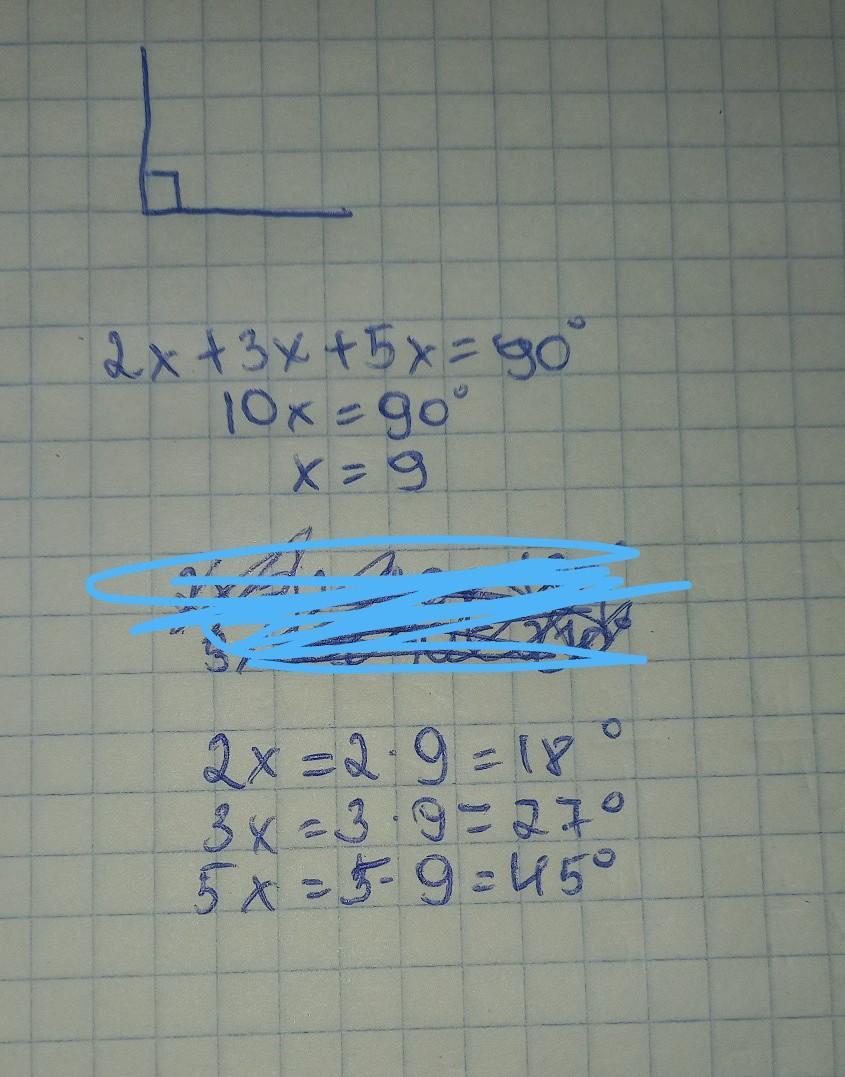 2x + 3x + 5x = 90°
10x = 90°
x = 9
2x = 2 · 9 = 18°
3x = 3 · 9 = 27°
5x = 5 · 9 = 45°